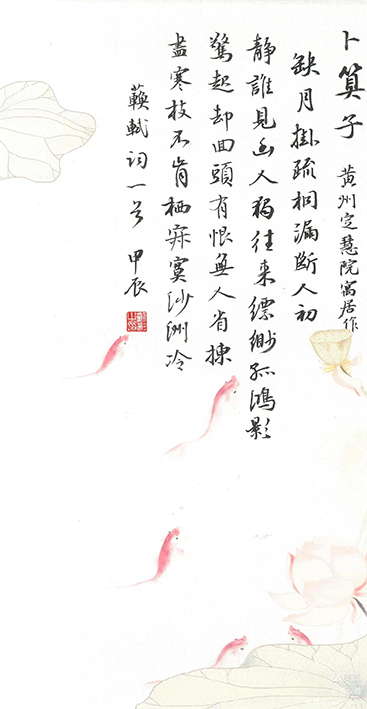 卜算子 黄州定慧院寓居作
缺月掛疏桐漏斷人初
靜誰見幽人獨往来縹緲孤鴻影
驚起却回頭有恨無人省揀
盡寒枝不肯栖寂寞沙洲冷
蘓軾詞一首 甲辰